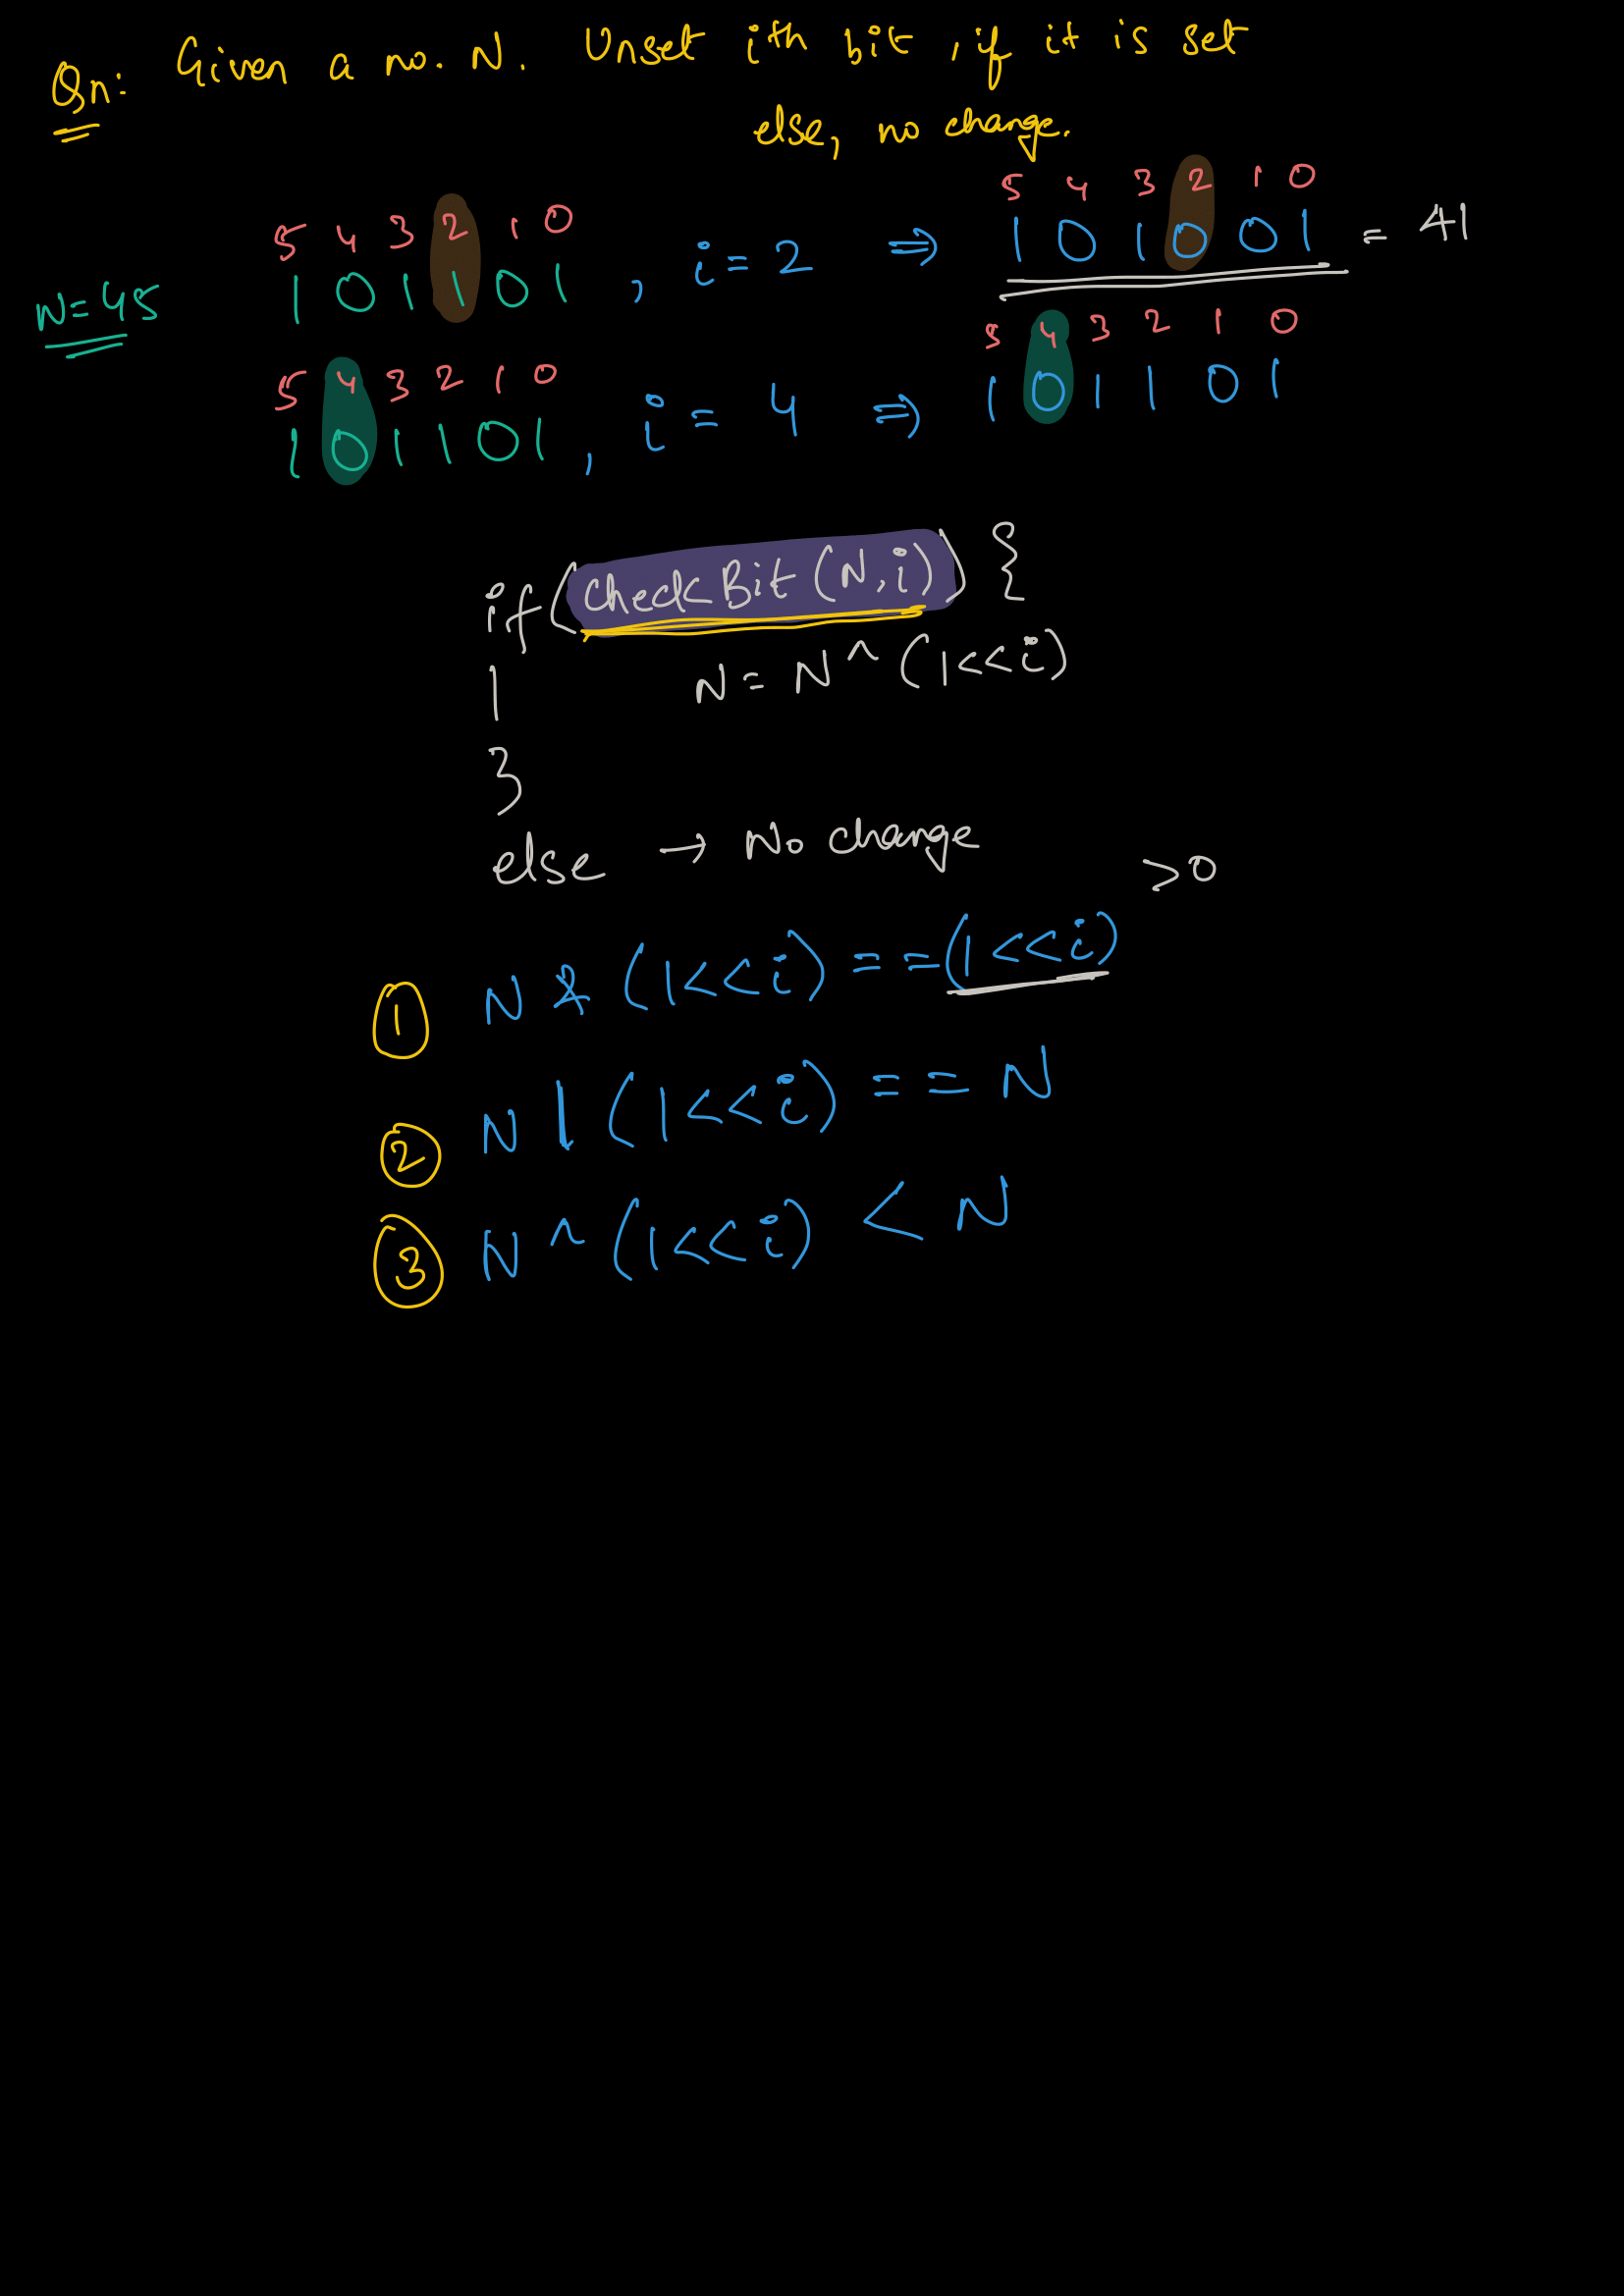 Qn: Given a no. N. Unset ith bit, if it is set
else, no change.
5 4 3 2 1 0
1 0 1 1 0 1 , i = 2 ⇒
5 4 3 2 1 0
1 0 1 0 0 1 = 41
N=45
5 4 3 2 1 0
1 0 1 1 0 1 , i = 4 ⇒
5 4 3 2 1 0
1 0 1 1 0 1
if(checkBit(N,i)) {
N = N ^ (1<<i)
}
else → No change
>0
1 N & (1<<i) == (1<<i)
2 N | (1<<i) == N
3 N ^ (1<<i) < N